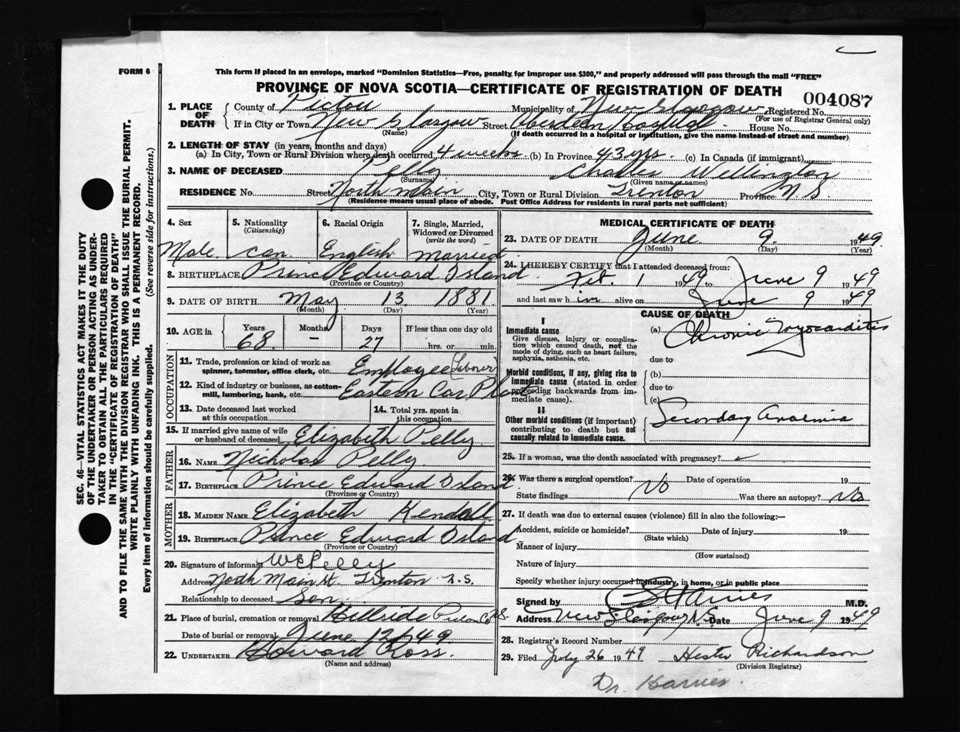 FORM 6
This form if placed in an envelope, marked "Dominion Statistics—Free, penalty for improper use $300," and properly addressed will pass through the mail "FREE"
PROVINCE OF NOVA SCOTIA—CERTIFICATE OF REGISTRATION OF DEATH
004087
1. PLACE OF DEATH
County of Pictou Municipality of New Glasgow Registered No.
(For use of Registrar General only)
If in City or Town New Glasgow Street Aberdeen Hospital House No.
(Name) (If death occurred in a hospital or institution, give the name instead of street and number)
2. LENGTH OF STAY (in years, months and days)
(a) In City, Town or Rural Division where death occurred 4 weeks (b) In Province 43 yrs. (c) In Canada (if immigrant)
3. NAME OF DECEASED Pelly Charles Wellington
(Surname) (Given name or names)
RESIDENCE No. Street North Main City, Town or Rural Division Trenton Province N S
(Residence means usual place of abode. Post Office Address for residents in rural parts not sufficient)
4. Sex
Male
5. Nationality
(Citizenship)
Can
6. Racial Origin
English
7. Single, Married, Widowed or Divorced
(write the word)
Married
8. BIRTHPLACE Prince Edward Island
(Province or Country)
9. DATE OF BIRTH May 13 1881
(Month) (Day) (Year)
10. AGE in
Years Months Days If less than one day old
68 – 27 hrs. or min.
OCCUPATION
11. Trade, profession or kind of work as spinner, teamster, office clerk, etc. Employee (Laborer)
12. Kind of industry or business, as cotton-mill, lumbering, bank, etc. Eastern Car Plant
13. Date deceased last worked at this occupation
14. Total yrs. spent in this occupation
15. If married give name of wife or husband of deceased Elizabeth Pelly
FATHER
16. NAME Nicholas Pelly
17. BIRTHPLACE Prince Edward Island
(Province or Country)
MOTHER
18. MAIDEN NAME Elizabeth Kendall
19. BIRTHPLACE Prince Edward Island
(Province or Country)
20. Signature of informant W C Pelly
Address North Main St. Trenton N.S.
Relationship to deceased Son
21. Place of burial, cremation or removal Hillside Pictou Co N.S.
Date of burial or removal June 12/49
22. UNDERTAKER Howard Ross
(Name and address)
MEDICAL CERTIFICATE OF DEATH
23. DATE OF DEATH June 9 1949
(Month) (Day) (Year)
24. I HEREBY CERTIFY that I attended deceased from:
Feb. 1 1949 to June 9 1949
and last saw him alive on June 9 1949
CAUSE OF DEATH
I
Immediate cause
Give disease, injury or complication which caused death, not the mode of dying, such as heart failure, asphyxia, asthenia, etc.
(a) Chronic Myocarditis
due to
Morbid conditions, if any, giving rise to immediate cause (stated in order proceeding backwards from immediate cause).
(b)
due to
(c)
II
Other morbid conditions (if important) contributing to death but not causally related to immediate cause.
Secondary Anaemia
25. If a woman, was the death associated with pregnancy?
26. Was there a surgical operation? No Date of operation 19
State findings Was there an autopsy? No
27. If death was due to external causes (violence) fill in also the following:—
Accident, suicide or homicide? Date of injury 19
(State which)
Manner of injury
(How sustained)
Nature of injury
Specify whether injury occurred in industry, in home, or in public place
Signed by Harries M.D.
Address New Glasgow N.S. Date June 9 1949
28. Registrar's Record Number
29. Filed July 26 1949 Hester Richardson
(Division Registrar)
Dr. Harries.
SEC. 46—VITAL STATISTICS ACT MAKES IT THE DUTY
OF THE UNDERTAKER OR PERSON ACTING AS UNDER-
TAKER TO OBTAIN ALL THE PARTICULARS REQUIRED
IN THE "CERTIFICATE OF REGISTRATION OF DEATH"
AND TO FILE THE SAME WITH THE DIVISION REGISTRAR WHO SHALL ISSUE THE BURIAL PERMIT.
WRITE PLAINLY WITH UNFADING INK. THIS IS A PERMANENT RECORD.
Every item of information should be carefully supplied. (See reverse side for instructions.)